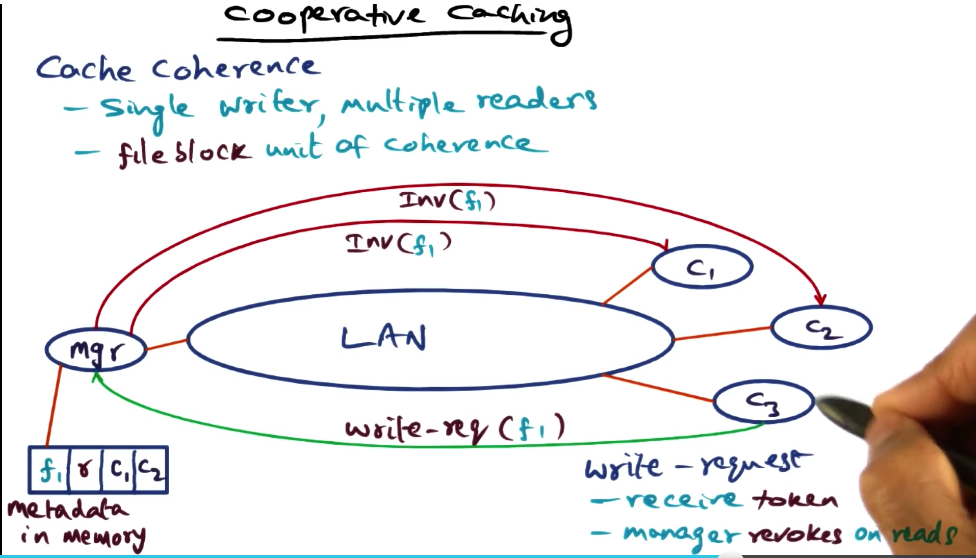 Cooperative Caching
Cache Coherence
- Single writer, multiple readers
- file block unit of coherence
Inv(f1)
Inv(f1)
C1
C2
LAN
mgr
C3
write-req (f1)
f1 r C1 C2
metadata
in memory
write-request
- receive token
- manager revokes on reads